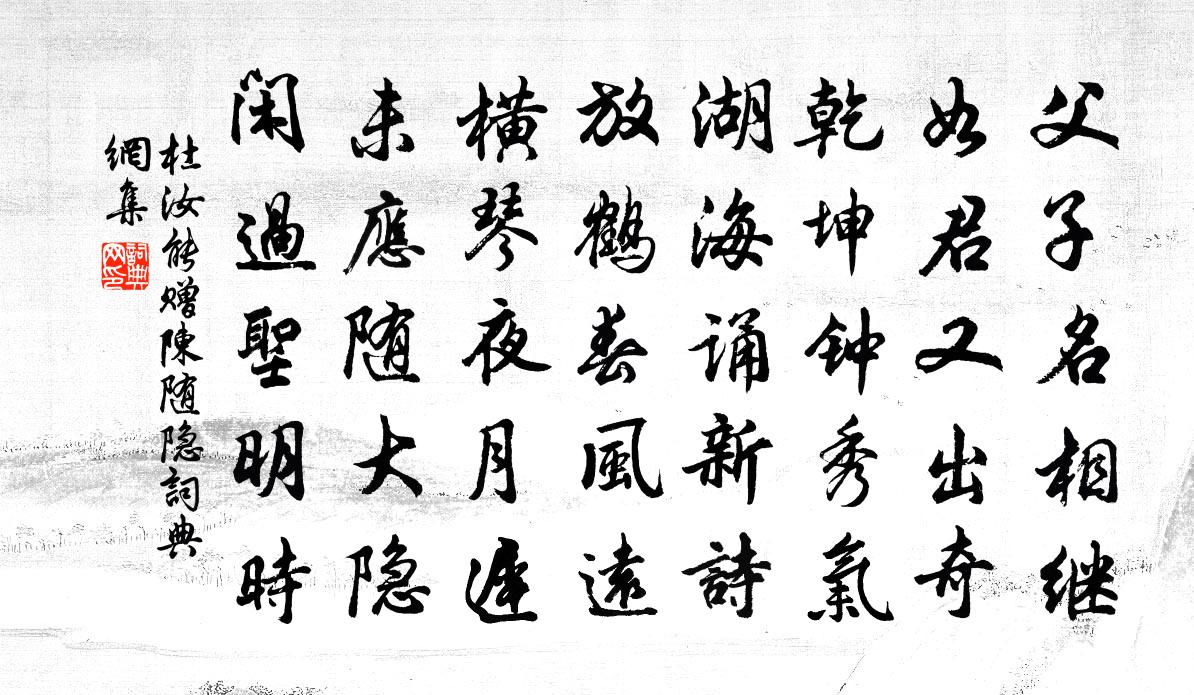 父子名相继
如君又出奇
乾坤钟秀氣
湖海诵新詩
放鶴春風遠
横琴夜月遲
未應随大隐
閑過聖明時
杜汝能赠陳随隐詞典
網集
詞典
网印